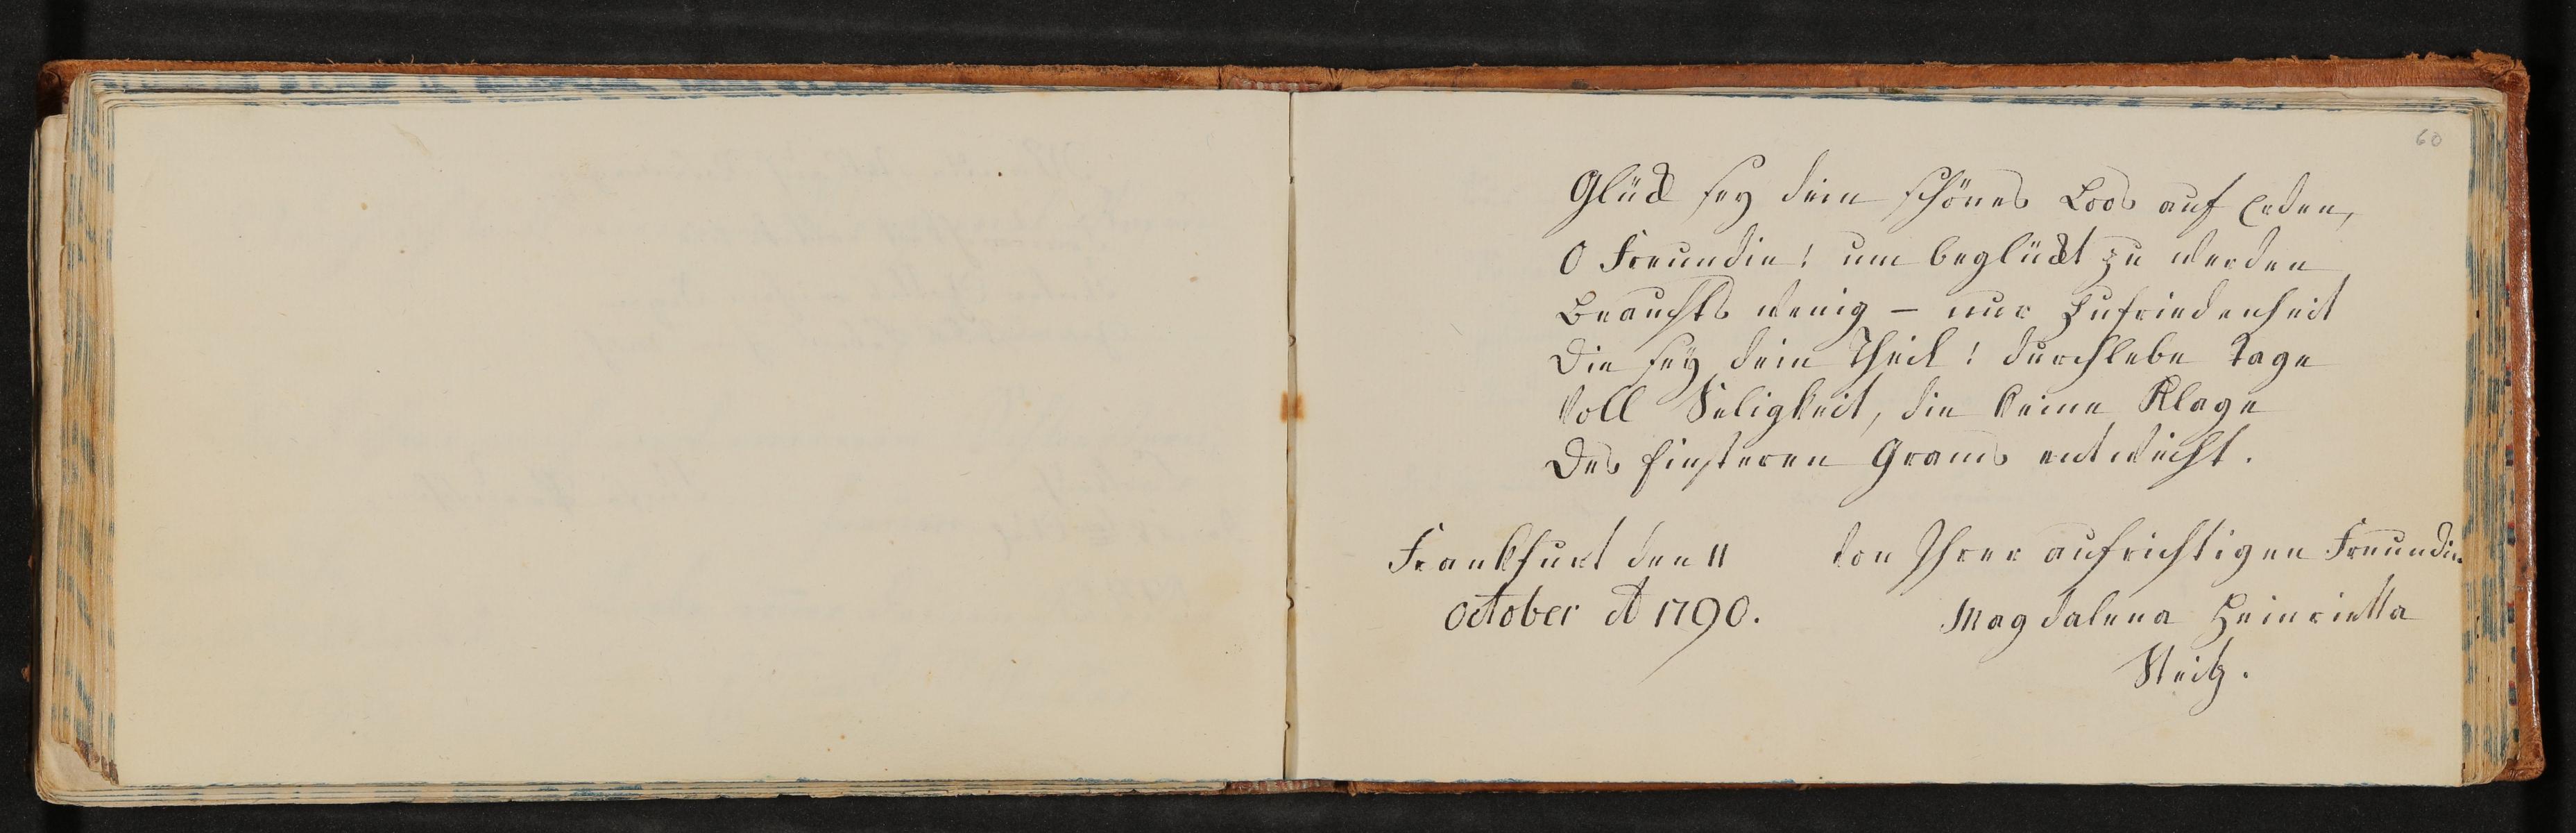 60
Glück sey dein schönes Loos auf Erden,
O Freundin! um beglückt zu werden
Brauchts wenig – nur Zufriedenheit
Die sey dein Theil! durchlebe Tage
Voll Seligkeit, die keine Klage
Des finsteren Grams entweicht.
Frankfurt den 11 von Ihrer aufrichtigen Freundin
October A 1790. Magdalena Heinrietta
Steitz.